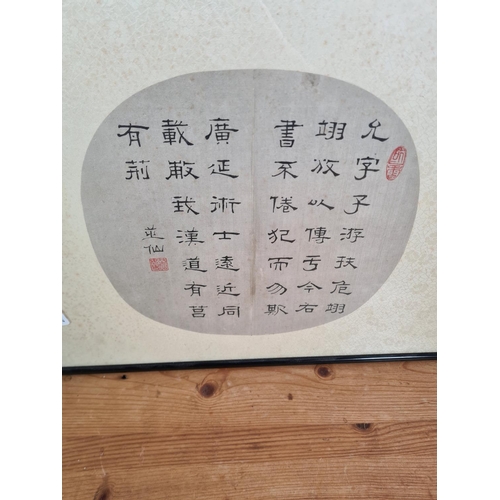 允字子游扶危翊
翊放以傳于今右
書不倦犯而勿欺
廣延術士遠近同
載蔽我漢道有莒
有荊